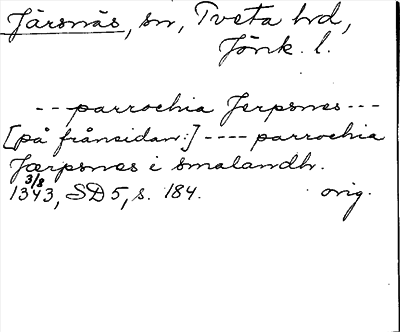 Järsnäs, sn, Tveta hd,
Jönk. l.
-- parrochia Jerpsnes ---
[på frånsidan:] ---- parrochia
Jærpsnes i smalandh.
3/8
1343, SD 5, s. 184. orig.